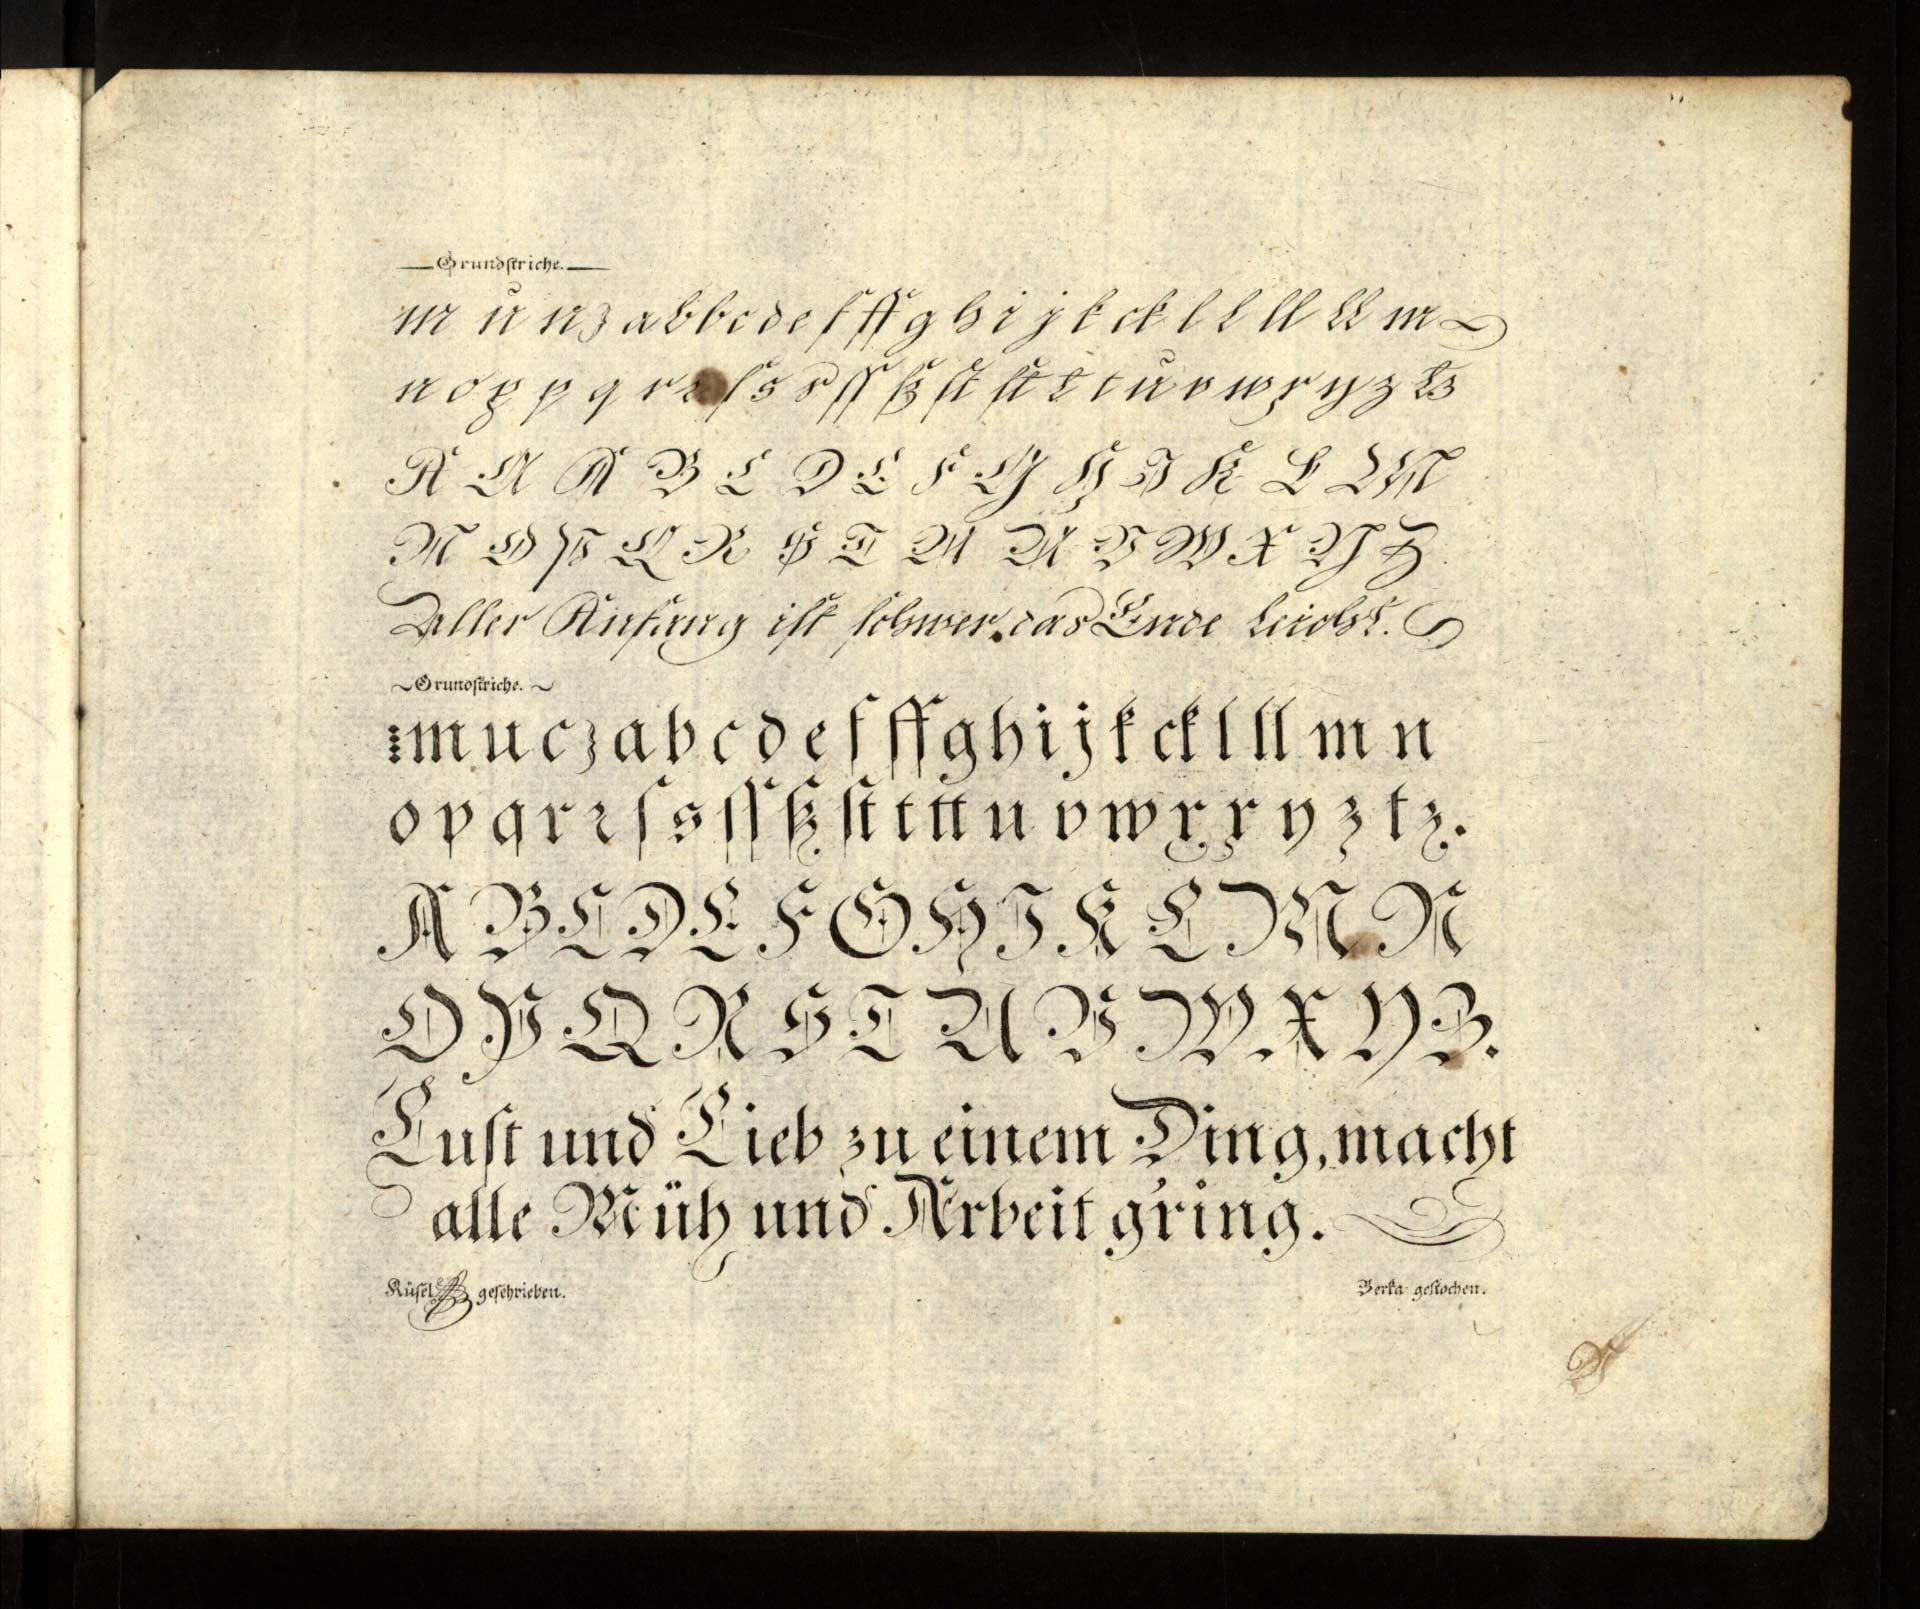 Grundſtriche.
m u n z a b b c d e f ff g h i j k ck l l ll ll m
n o p p q r r ſ s s ſſ ß ſt ſt t t u v w x y z tz
A A A B C D E F G H I K L M
N O P Q R S T U U V W X Y Z
Aller Anfang iſt ſchwer, das Ende leicht.
Grundſtriche.
m u c z a b c d e f ff g h i j k ck l ll m n
o p q r r ſ s ſſ ß ſt t tt u v w x x y z tz.
A B C D E F G H I K L M N
O P Q R S T U V W X Y Z.
Luſt und Lieb zu einem Ding, macht
alle Müh und Arbeit g'ring.
Küſel geſchrieben.
Berka geſtochen.